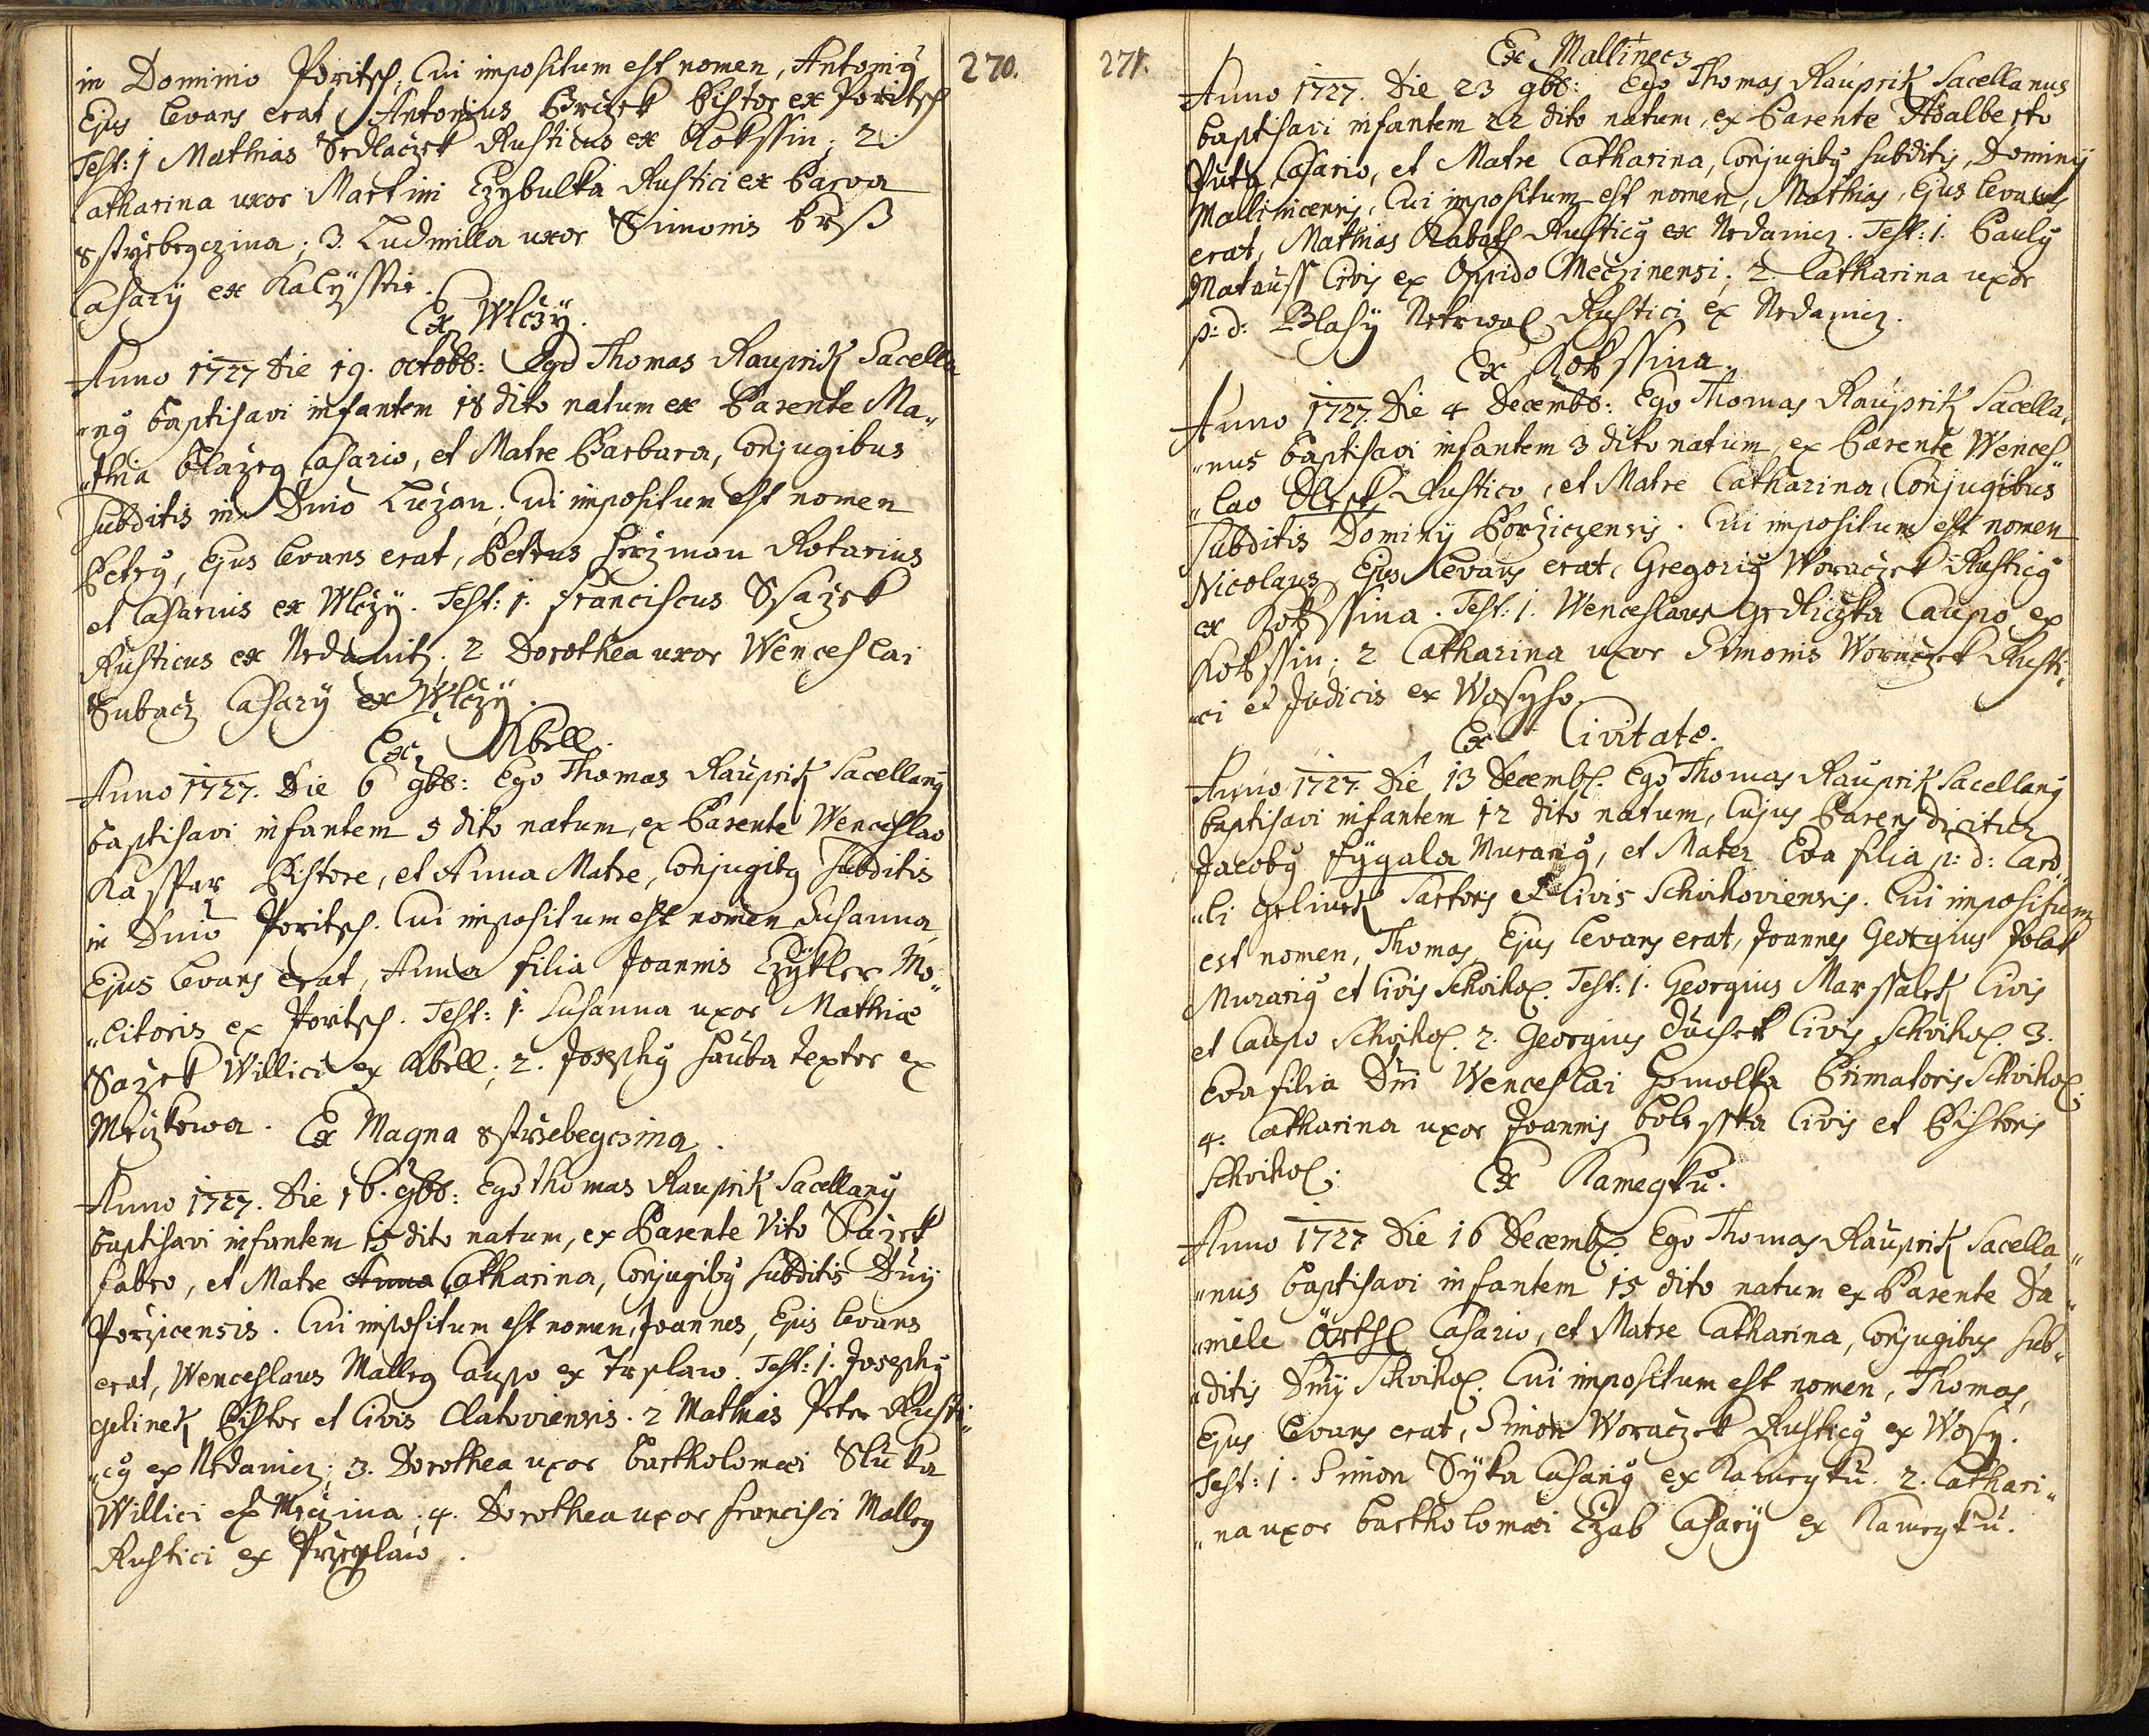 270.
in Dominio Poritsch; Cui impositum est nomen, Antonius
Ejus levans erat Antonius Pistor ex Poritsch
Test: 1 Mathias Sedlaczek Rusticus ex Rokssin; 2
Catharina uxor Martini Czybulka Rustici ex Parva
; 3. Ludmilla uxor Simonis
Casarÿ ex
Ex Wlczÿ.
Anno 1727 Die 19. octobr: Ego Thomas Rauprik Sacella
"nus baptisavi infantem 18 dito natum ex Parente Ma„
"thia Casario, et Matre Barbara, Conjugibus
subditis in Dnio Luzan; Cui impositum est nomen
Petrus, Ejus levans erat, Petrus Rotarius
et Casarius ex Wlczÿ. Test: 1. Franciscus
Rusticus ex Nedanitz; 2 Dorothea uxor Wenceslai
Casarÿ ex Wlczÿ.
Ex Kbell.
Anno 1727. Die 6 9br: Ego Thomas Rauprik Sacellanus
baptisavi infantem 5 dito natum, ex Parente Wenceslao
Kasspar Pistore, et Anna Matre, Conjugibus subditis
in Dnio Poritsch. Cui impositum est nomen Susanna,
Ejus levans erat, Anna filia Joannis Mo„
„litoris ex Poritsch. Test: 1. Susanna uxor Mathiæ
Sazek Willici ex Kbell; 2. Josephus textor ex
Ex Magna
Anno 1727. Die 16. 9br: Ego Thomas Rauprik Sacellanus
baptisavi infantem 15 dito natum, ex Parente Vito Sazek
fabro, et Matre Anna Catharina, Conjugibus subditis Dnij
Porzicensis. Cui impositum est nomen, Joannes, Ejus levans
erat, Wenceslaus Malleg Caupo ex Test: 1. Josephus
Gelinek Pistor et Civis Clatoviensis. 2 Mathias Peter Rusti„
„cus ex Nedanicz; 3. Dorothea uxor Bartholomæi
Willici ex ; 4. Dorothea uxor Francisci Malleg
Rustici ex
271.
Ex Mallinecz
Anno 1727. Die 23 9br: Ego Thomas Rauprik Sacellanus
baptisavi infantem 22 dito natum, ex Parente Adalberto
Puta Casario, et Matre Catharina, Conjugibus subditis, Dominij
Mallinicensis, Cui impositum est nomen, Mathias, Ejus levans
erat, Mathias Rusticus ex Nedanicz. Test: 1. Paulus
Matauss Civis ex Oppido Meczinensi; 2. Catharina uxor
p: d: Blasÿ Rustici ex Nedanicz.
Ex Rokssina.
Anno 1727. Die 4 Decembr: Ego Thomas Rauprik Sacella„
„nus baptisavi infantem 3 dito natum, ex Parente Wences„
„lao Rustico, et Matre Catharina, Conjugibus
subditis Dominij Porziczensis. Cui impositum est nomen
Nicolaus, Ejus levans erat, Gregorius Woraczek Rusticus
ex Rokssina. Test: 1. Wenceslaus Caupo ex
Rokssin; 2 Catharina uxor Simonis Woraczek Rusti„
„ci et Judicis ex
Ex Civitate.
Anno 1727. Die 13 Decemb. Ego Thomas Rauprik Sacellanus
baptisavi infantem 12 dito natum, Cujus Parens dicitur
Jacobus Fygala Murarius, et Mater Eva filia p: d: Caro„
„li Gelinek Sartoris et Civis Schvihoviensis. Cui impositum
est nomen, Thomas, Ejus levans erat, Joannes Georgius Polak
Murarius et Civis Schvihov. Test: 1. Georgius Marssalek Civis
et Caupo Schvihov. 2. Georgius Duchek Civis Schvihov. 3.
Eva filia Dni Wenceslai Homolka Primatoris Schvihov.
4. Catharina uxor Joannis Civis et Pistoris
Schvihov.
Ex Kamegku.
Anno 1727. Die 16 Decemb. Ego Thomas Rauprik Sacella„
„nus baptisavi infantem 15 dito natum ex Parente Da„
„niele Casario, et Matre Catharina, Conjugibus sub„
„ditis Dnij Schvihov. Cui impositum est nomen, Thomas,
Ejus levans erat, Simon Woraczek Rusticus ex
Test: 1. Simon Sÿka Casarius ex Kamegku. 2. Cathari„
„na uxor Bartholomæi Casarÿ ex Kamegku.